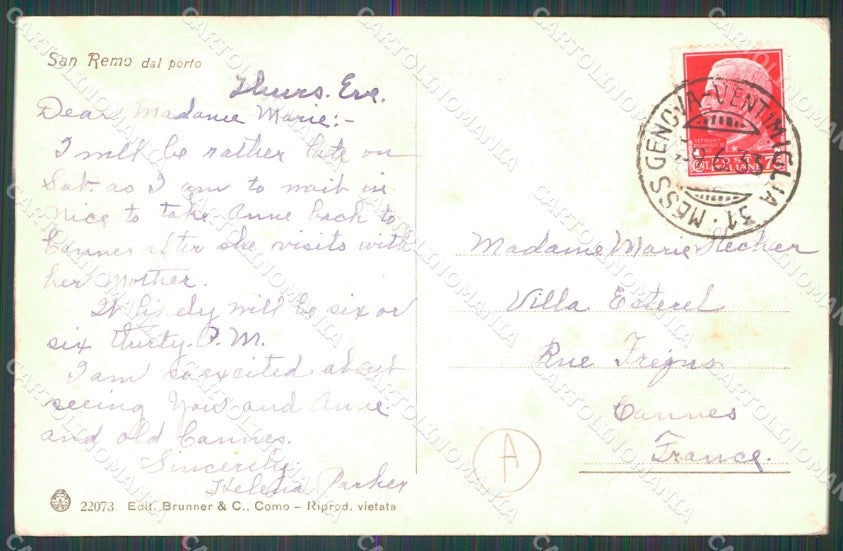 San Remo dal porto
Thurs. Eve.
Dear Madame Marie:-
I will be rather late on
Sat. as I am to wait in
Nice to take Anne back to
Cannes after she visits with
her Mother.
It likely will be six or
six thirty. P.M.
I am so excited about
seeing you and Anne
and old Cannes.
Sincerely.
Parker
22073 Edit. Brunner & C., Como - Riprod. vietata
MESS GENOVA-VENTIMIGLIA 31
POSTE
ITALIANE
Madame Marie
Villa Esterel
Rue Fréjus
Cannes
France.
A
CARTOLINOMANIA